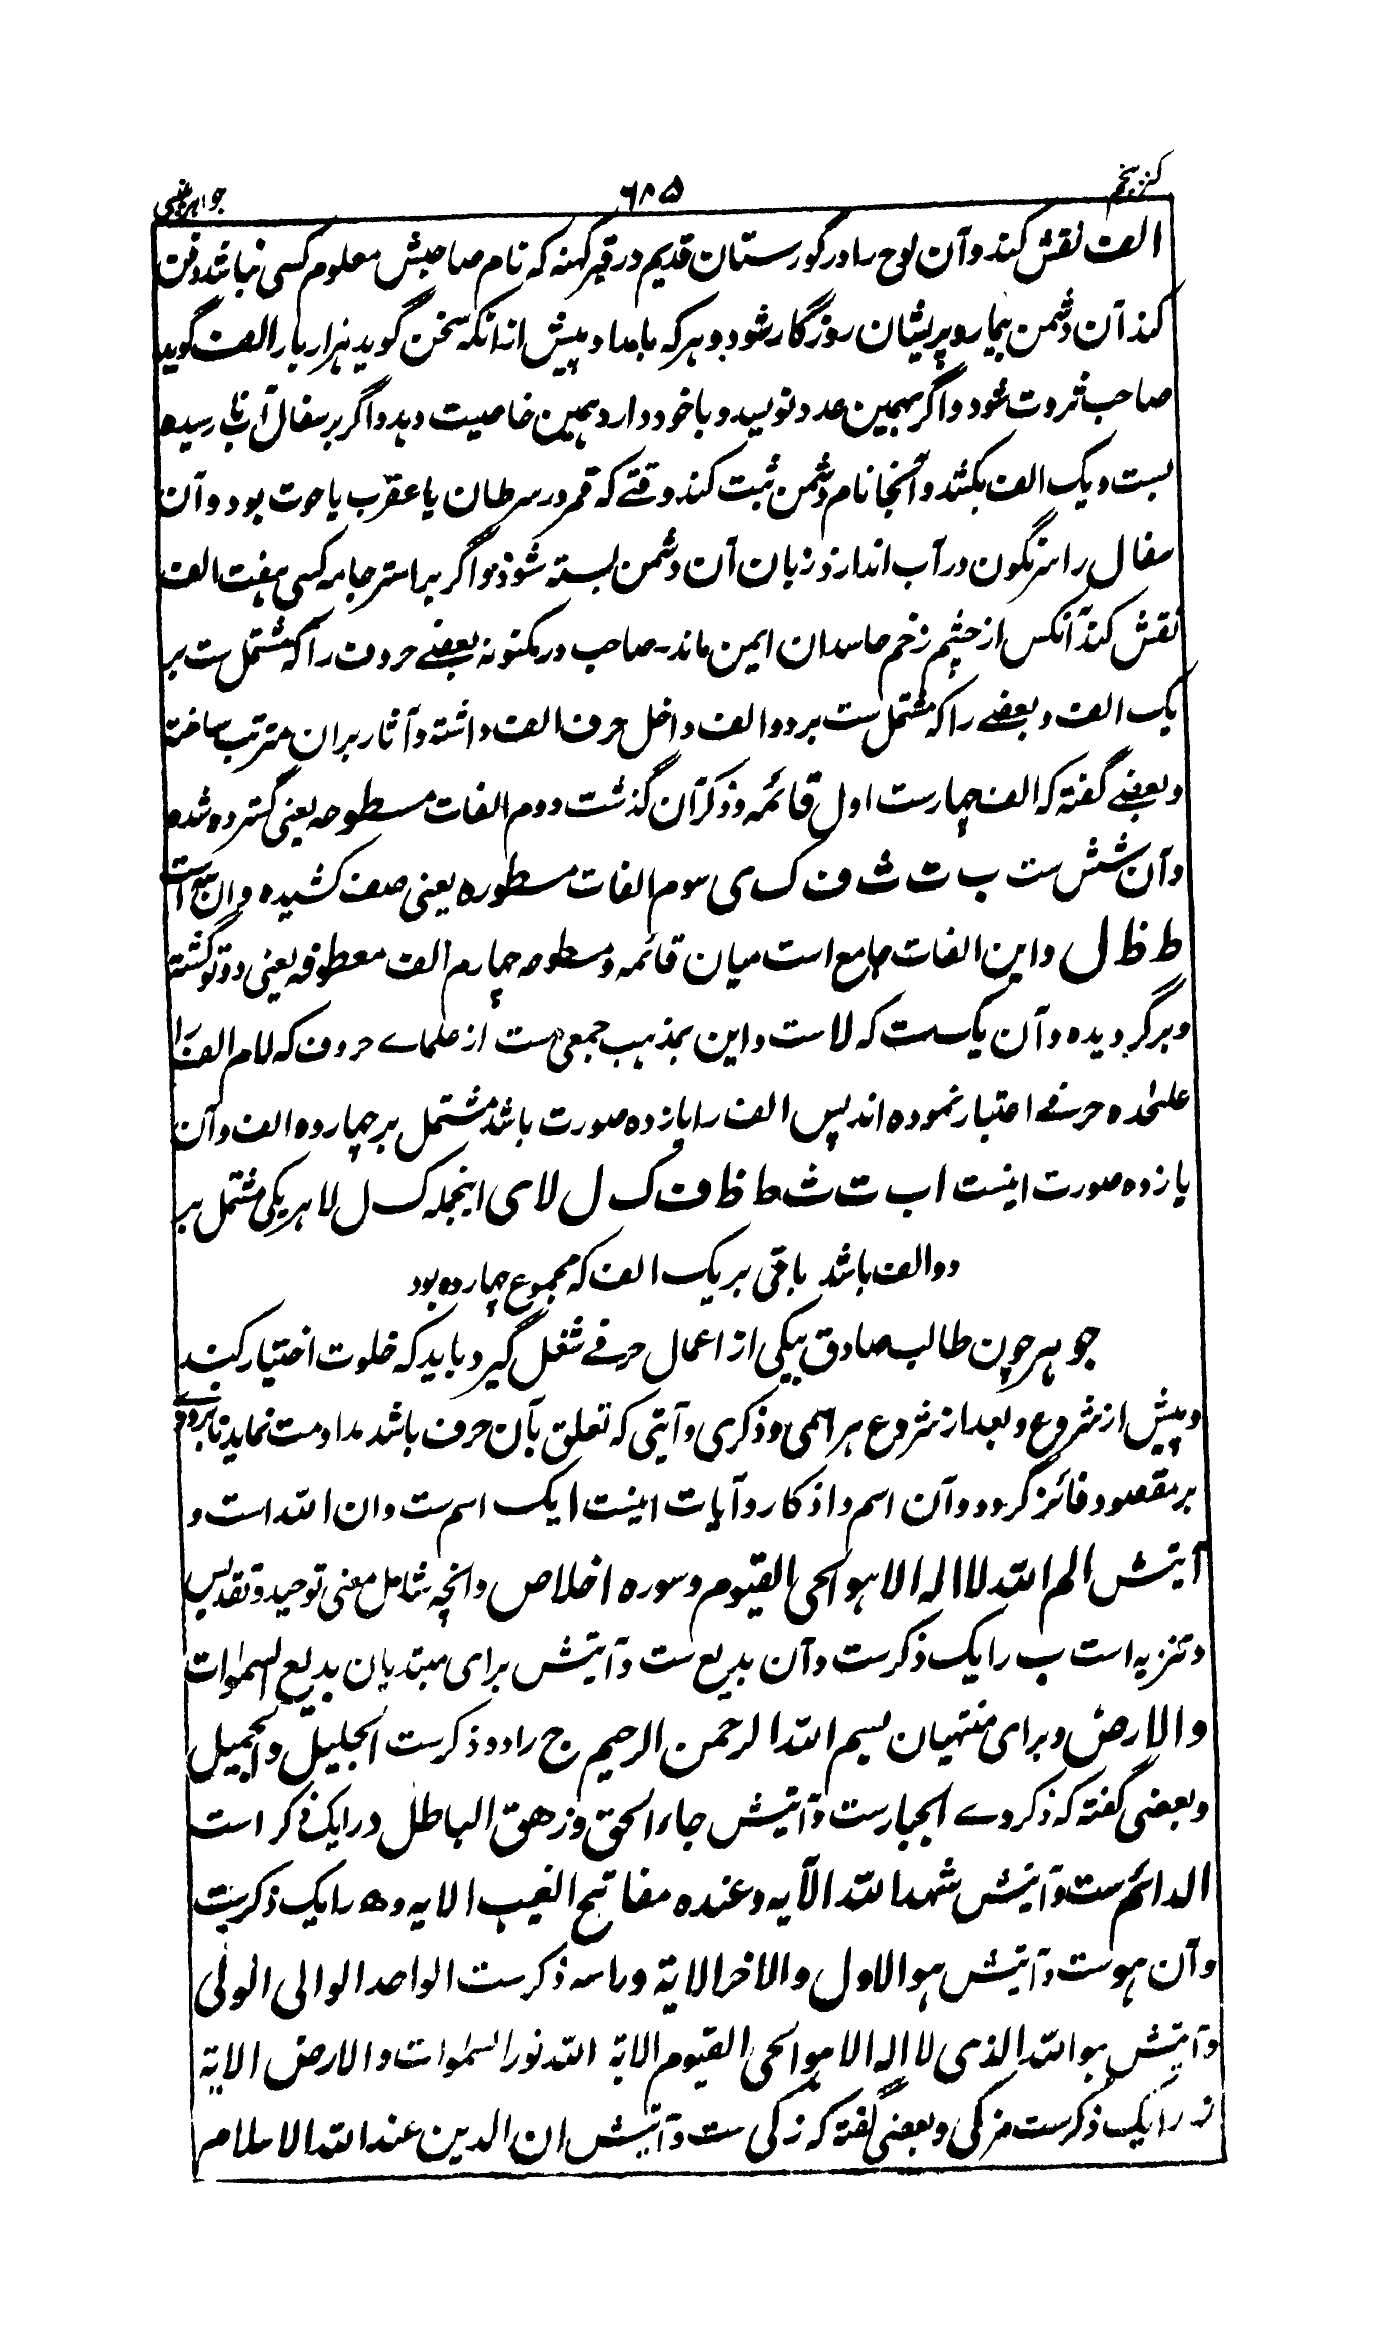 کنز پنجم ۶۸۵ جواہر غیبی
الف نقش کند و آن لوح را در گورستان قدیم در قبر کہنہ کہ نام صاحبش معلوم کسی نباشد دفن
کند آن دشمن بیمار و پریشان روزگار شود و ہر کہ بامداد پیش از انکہ سخن گوید ہزار بار الف گوید
صاحب ثروت شود و اگر بہمین عدد نویسد و با خود دارد ہمین خاصیت دہد و اگر بر سفال آب نارسیدہ
بست و یک الف بکشد و آنجا نام دشمن ثبت کند وقتے کہ قمر در سرطان یا عقرب یا حوت بود و آن
سفال را سرنگون در آب اندازد زبان آن دشمن بستہ شود و اگر بر استر جامہ کسی ہفت الف
نقش کند آنکس از چشم زخم حاسدان ایمن ماند۔ صاحب در مکنونہ بعضے حروف را کہ مشتمل ست بر
یک الف و بعضے را کہ مشتمل ست بر دو الف داخل حرف الف داشتہ و آثار بران مترتب ساختہ
و بعضے گفتہ کہ الف چہارست اول قائمہ و ذکر آن گذشت دوم الفات مسطوحہ یعنی گستردہ شدہ
و آن شش ست ب ت ث ف ک ی سوم الفات مسطورہ یعنی صف کشیدہ و ان سہ است
ط ظ ل و این الفات جامع است میان قائمہ و مسطوحہ چہارم الف معطوفہ یعنی دوتو گشتہ
و برگردیدہ و آن یکست کہ لا ست و این بمذہب جمعی ست از علماے حروف کہ لام الف را
علیٰحدہ حرفے اعتبار نمودہ اند پس الف را یازدہ صورت باشد مشتمل بر چہاردہ الف و آن
یازدہ صورت اینست ا ب ت ث ط ظ ف ک ل لا ی اینجملہ ک ل لا ہر یکی مشتمل بر
دو الف باشد باقی بر یک الف کہ مجموع چہاردہ بود
جوہر چون طالب صادق بیکی از اعمال حرفے شغل گیرد باید کہ خلوت اختیار کند
و پیش از شروع و بعد از شروع ہر اسمی و ذکری و آیتی کہ تعلق بآن حرف باشد مداومت نماید تا بزودے
بر مقصود فائز گردد و آن اسم و اذکار و آیات اینست ا یک اسم ست و ان اللہ است و
آیتش الم اللہ لا الہ الا ہو الحی القیوم و سورہ اخلاص و انچہ شامل معنی توحید و تقدیس
و تنزیہ است ب را یک ذکرست و آن بدیع ست و آیتش برای مبتدیان بدیع السموات
والارض و برای منتہیان بسم اللہ الرحمن الرحیم ج را دو ذکرست الجلیل و الجمیل
و بعضی گفتہ کہ ذکر وے الجبارست و آیتش جاء الحق و زھق الباطل د را یک ذکر است
الدائم ست و آیتش شہد اللہ الآیہ و عندہ مفاتیح الغیب الایہ و ھ را یک ذکریست
و آن ہوست و آیتش ہو الاول والاخر الایۃ و را سہ ذکرست الواحد الوالی الولی
و آیتش ہو اللہ الذی لا الہ الا ہو الحی القیوم الایۃ اللہ نور السموات والارض الایۃ
ز را یک ذکرست مزکی و بعضی گفتہ کہ زکی ست و آیتش ان الدین عند اللہ الاسلام